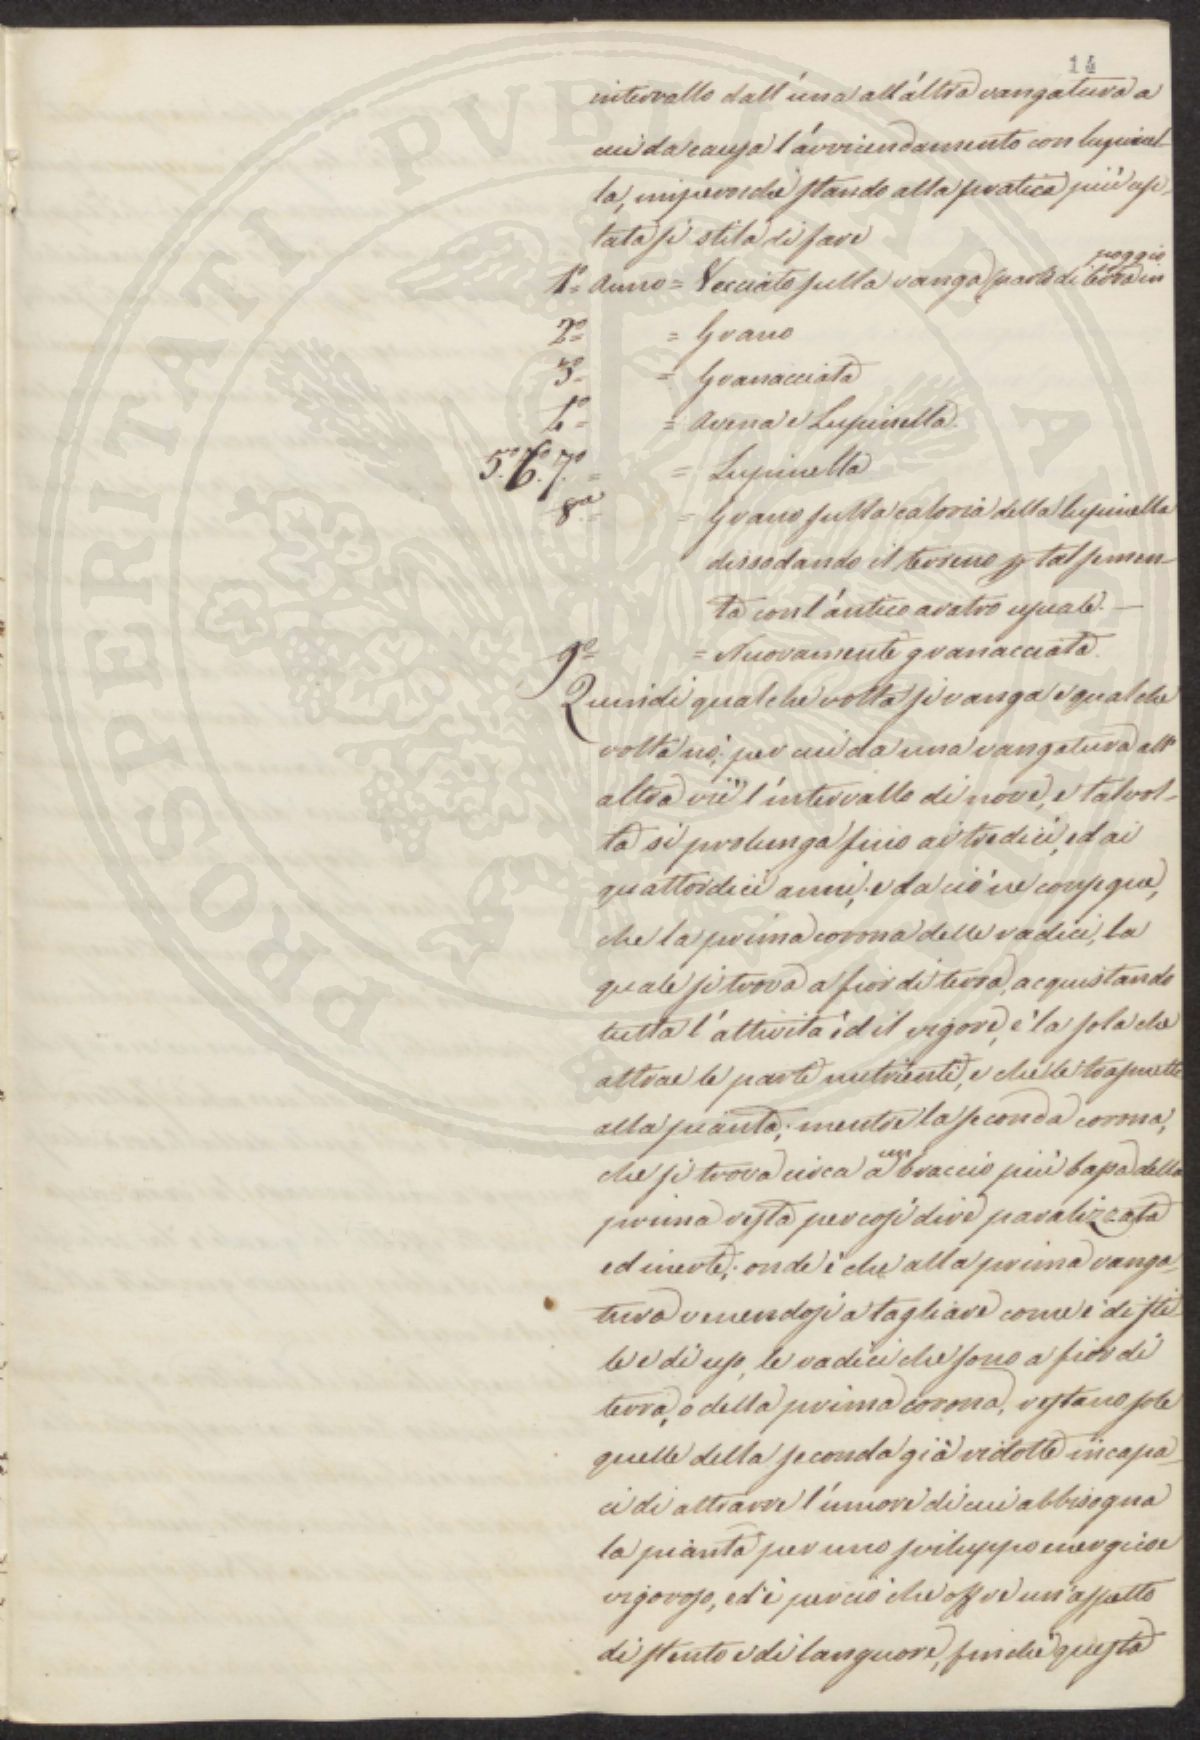 14
intervallo dall'una all'altra vangatura a
cui da causa l'avvicendamento con lupinel-
la, imperocchè stando alla pratica più usi-
tata si stila di fare
poggio
1º= Anno = Vecciato sulla vanga (parlo di terra in
2º= = Grano
3º= = Granacciata
4º= = Avena e Lupinella.
5º. 6º. 7º.= = Lupinella
8ª.= = Grano sulla caloria della lupinella
dissodando il terreno p tal semen-
ta con l'antico aratro usuale. —
9º= = Nuovamente granacciata.
Quindi qualche volta si vanga e qualche
volta nò; per cui da una vangatura all'
altra viè l'intervallo di nove, e talvol-
ta si prolunga fino ai tredici, ed ai
quattordici anni; e da ciò ne consegue,
che la prima corona delle radici, la
quale si trova a fior di terra, acquistando
tutta l'attività ed il vigore, è la sola che
attrae le parti nutrienti, e che le trasmette
alla pianta; mentre la seconda corona,
che si trova circa a un braccio più bassa della
prima resta per così dire paralizzata
ed inerte; onde è che alla prima vanga-
tura venendosi a tagliare come è di sti-
le e di uso, le radici che sono a fior di
terra, o della prima corona, restano sole
quelle della seconda già ridotte incapa-
ci di attrarre l'umore di cui abbisogna
la pianta per uno sviluppo energico e
vigoroso, ed è perciò che offre un'aspetto
di stento e di languore, finchè questa
PROSPERITATI PVBLICAE AVGENDAE